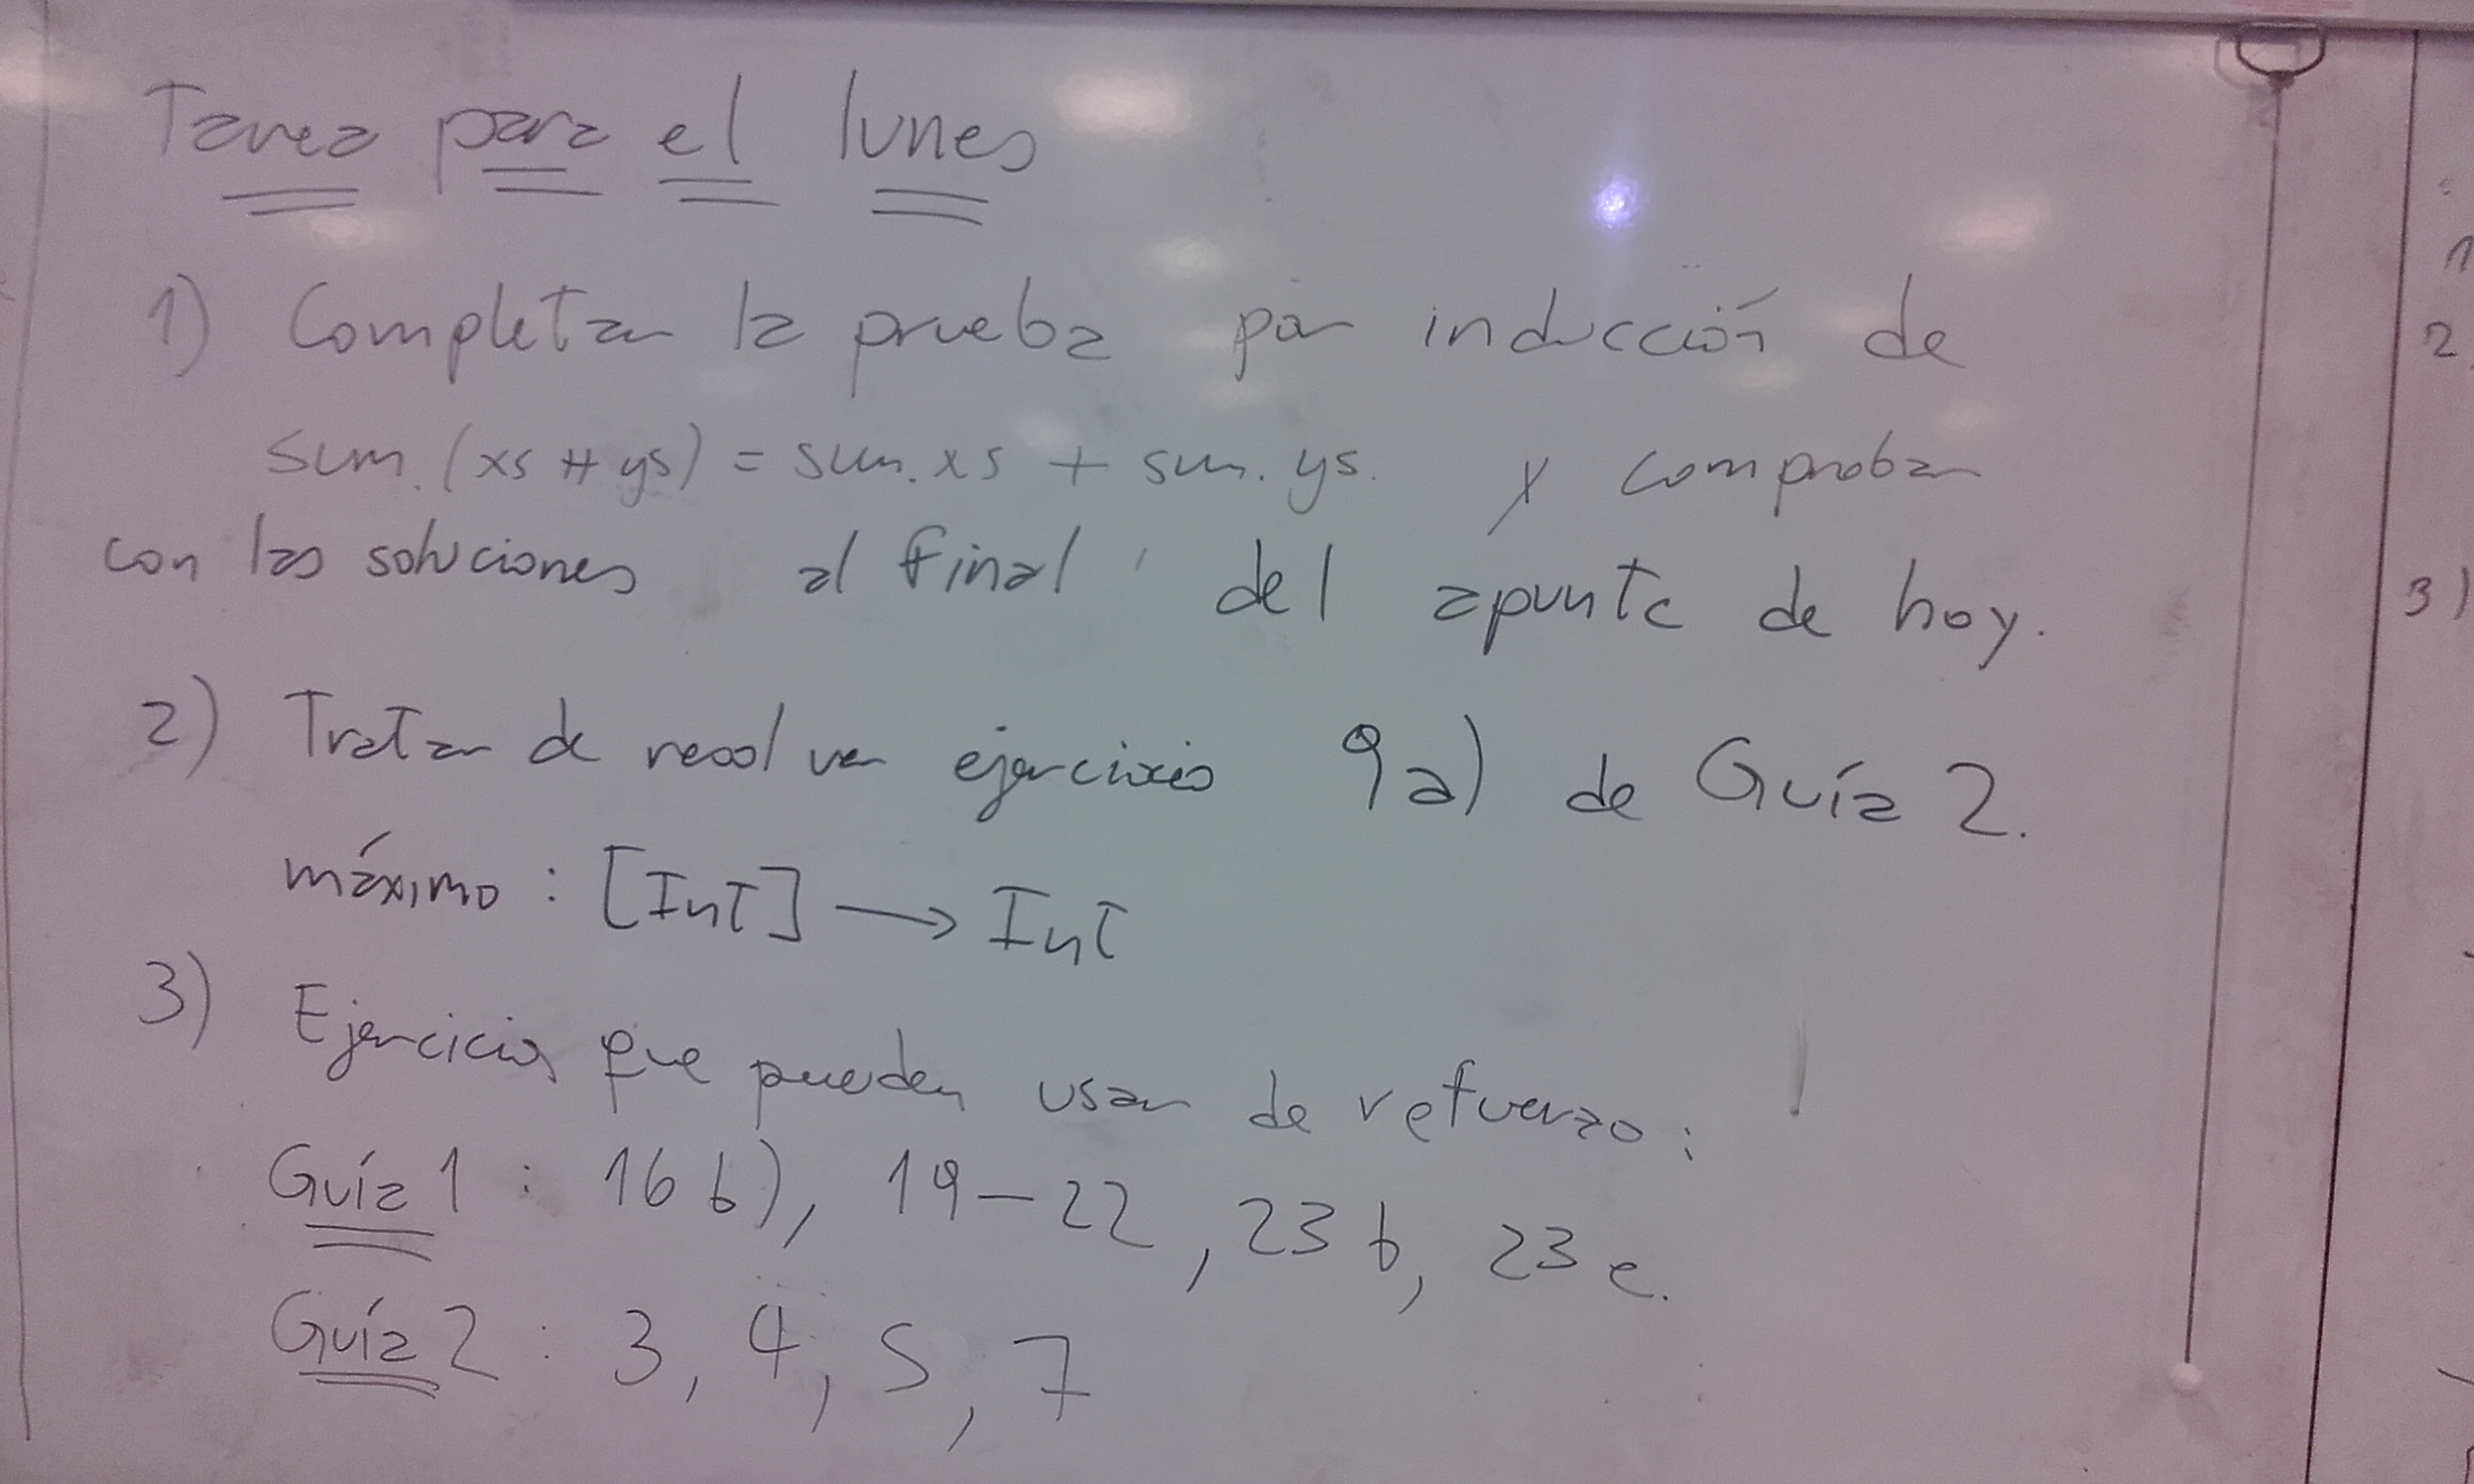 Tarea para el lunes
1) Completar la prueba por inducción de
sum.(xs ++ ys) = sum.xs + sum.ys. y comprobar
con las soluciones al final del apunte de hoy.
2) Tratar de resolver ejercicio 9a) de Guía 2.
máximo : [Int] → Int
3) Ejercicios que pueden usar de refuerzo:
Guía 1 : 16 b), 19-22, 23 b, 23 e.
Guía 2 : 3, 4, 5, 7
2
3)